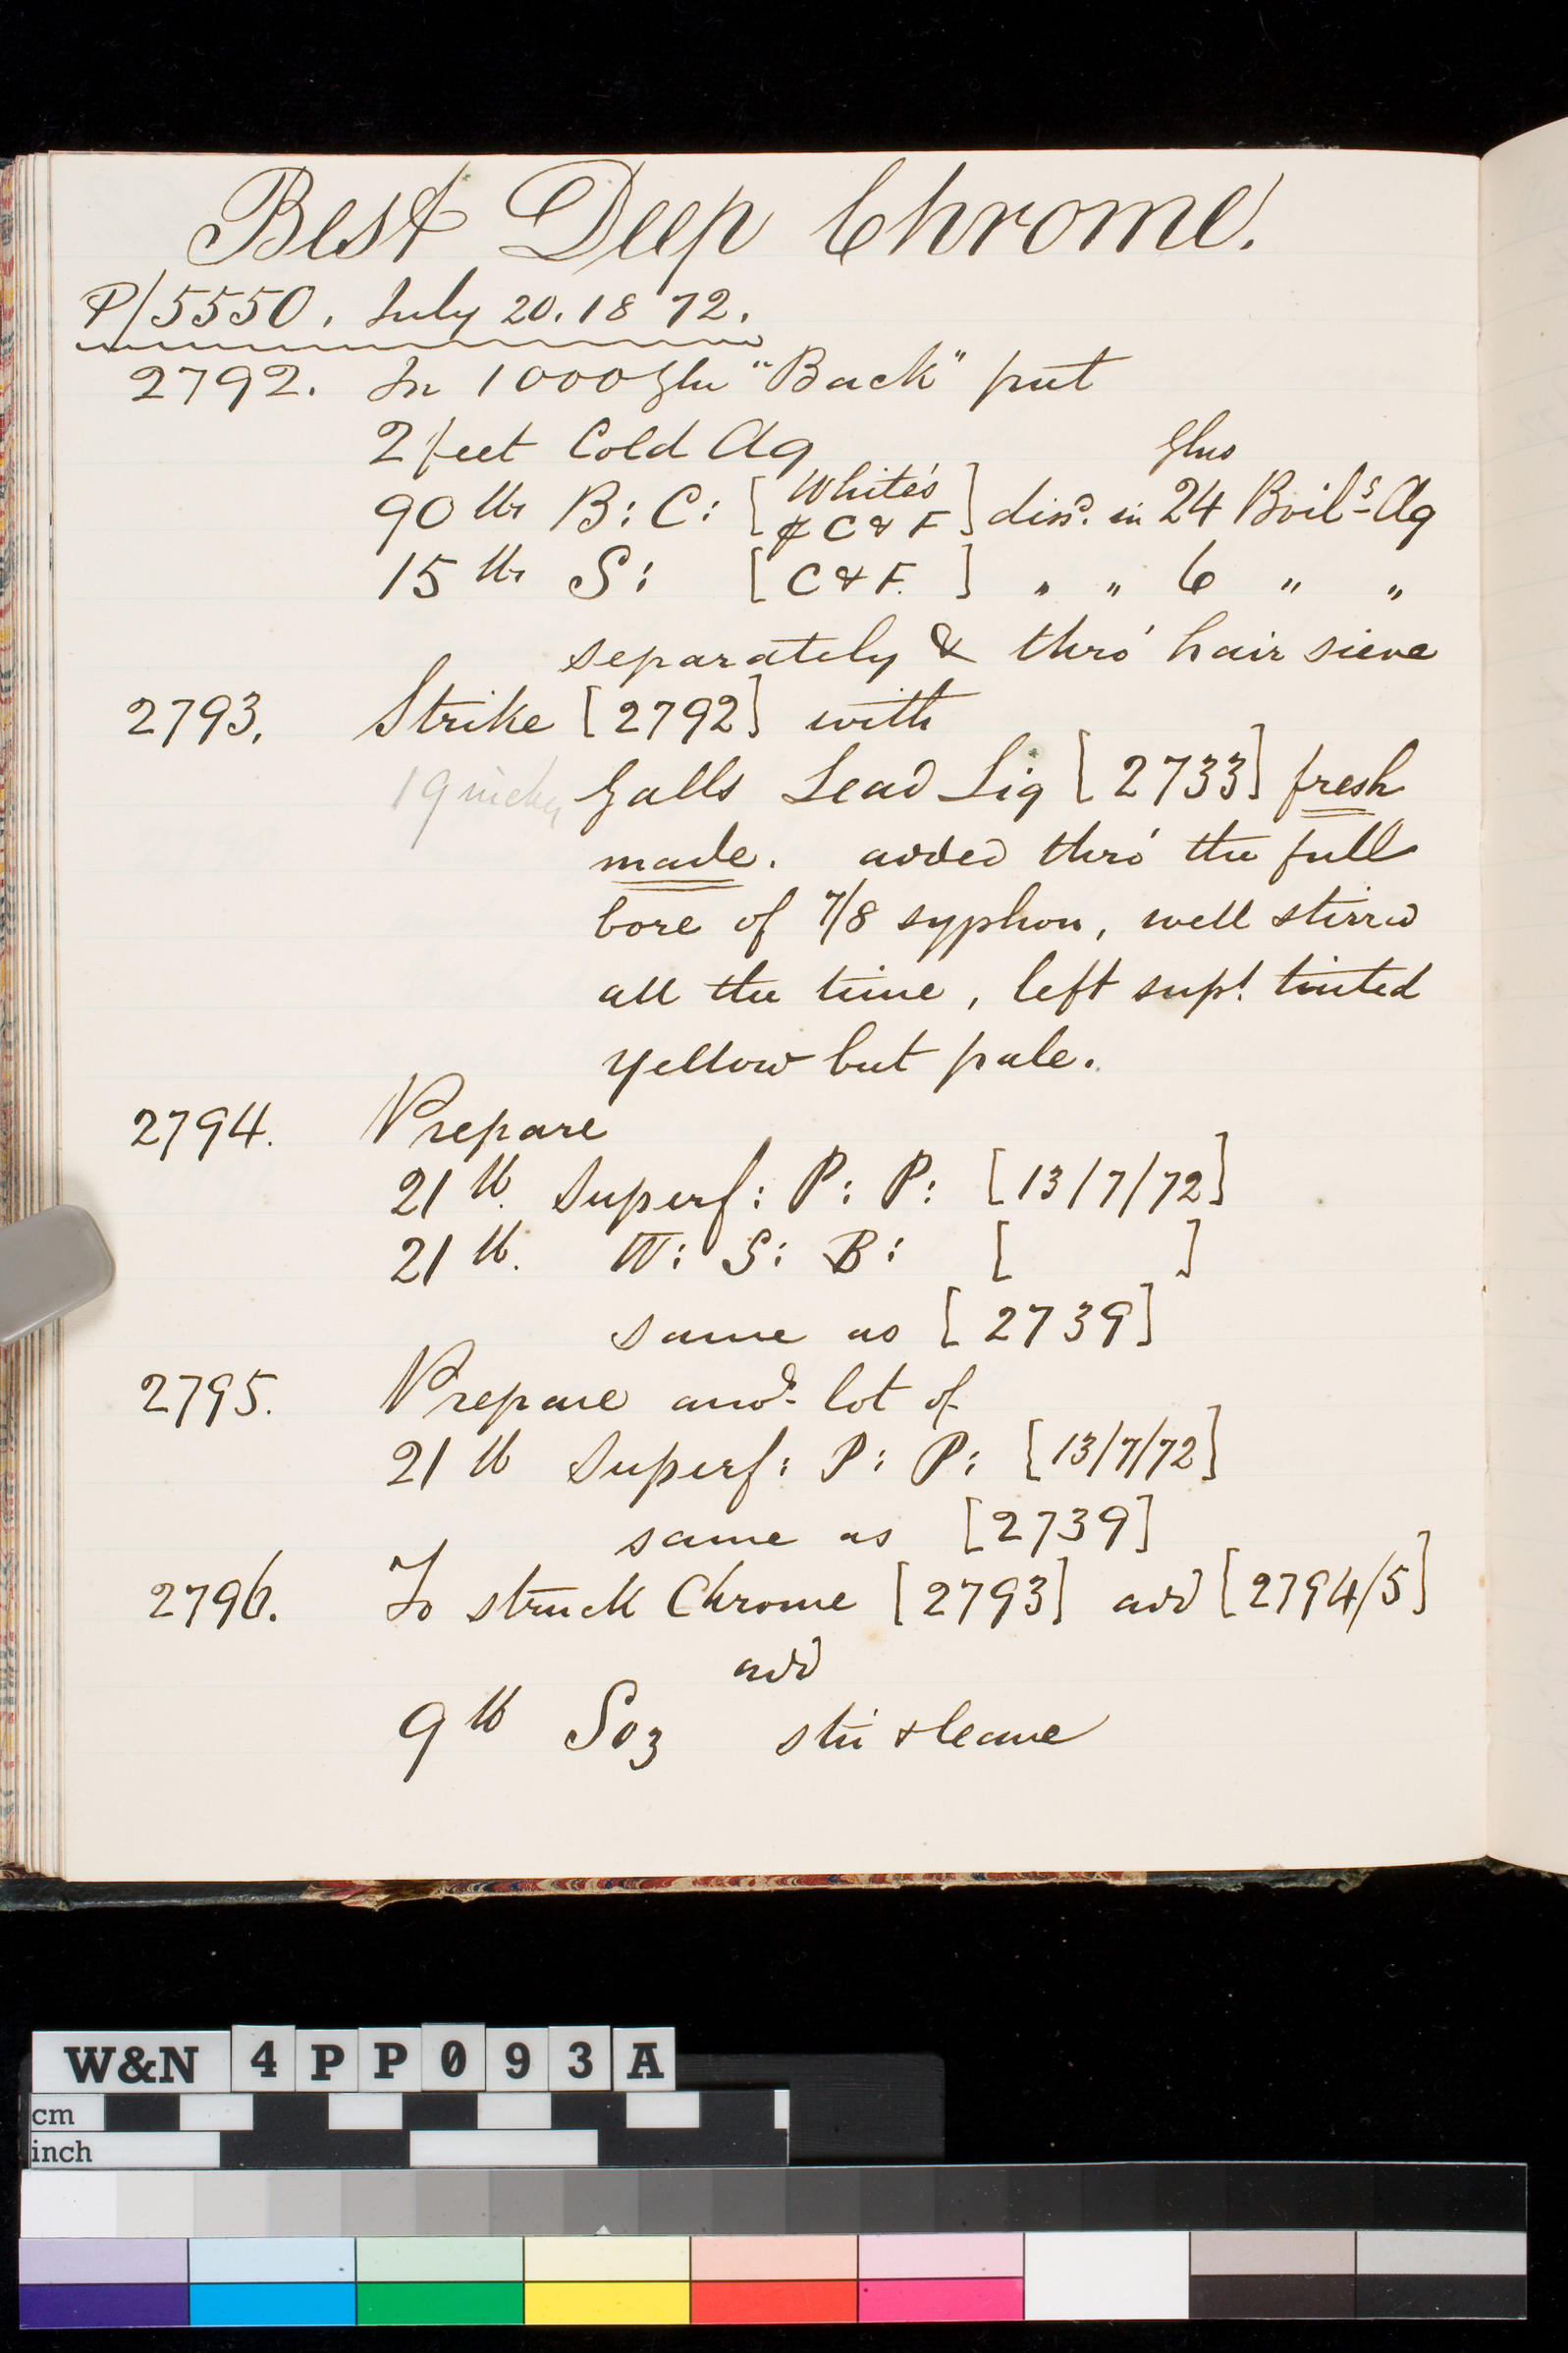 Best Deep Chrome.
P/5550. July 20. 1872.
2792. In 1000 Gln "Back" put
2 feet Cold Aq
90 lbs B: C: [White's & C & F] diss^d. in 24 Glns Boil^g Aq
15 lbs S: [C & F.] " " 6 " "
separately & thro' hair sieve
2793. Strike [2792] with
19 inches Galls Lead Liq [2733] fresh
made. added thro' the full
bore of 7/8 syphon, well stirred
all the time, left sup^t. tinted
yellow but pale.
2794. Prepare
21 lb. Superf: P: P: [13/7/72]
21 lb. W: S: B: [ ]
same as [2739]
2795. Prepare ano^r lot of
21 lb Superf: P: P: [13/7/72]
same as [2739]
2796. To struck Chrome [2793] add [2794/5]
add
9 lb So3 stir & leave
W&N 4PP093A
cm
inch